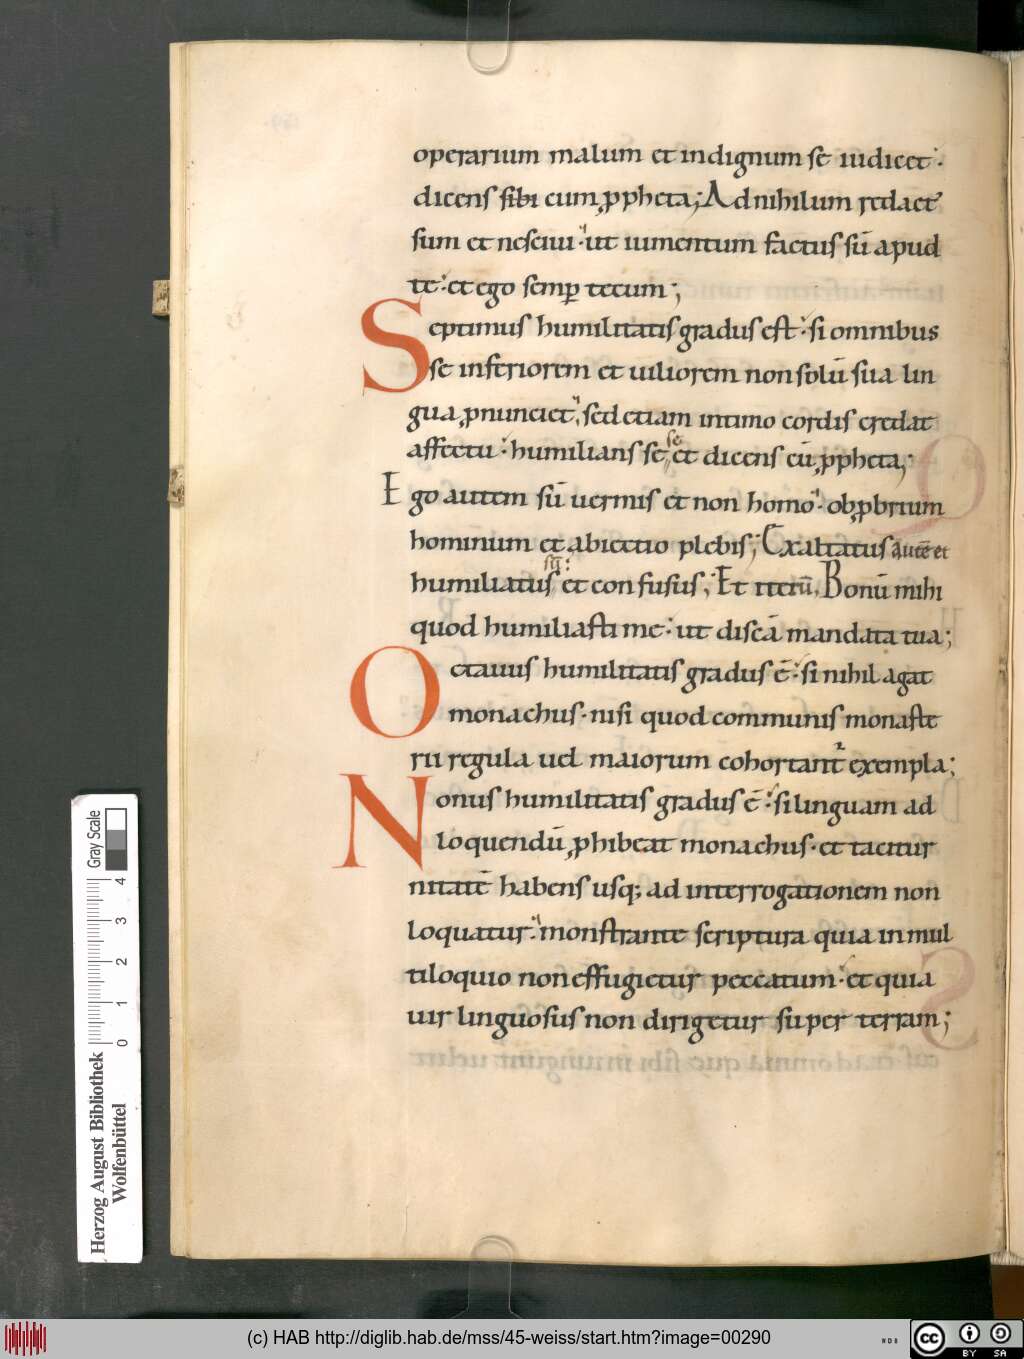 operarium malum et indignum se iudicet·
dicens sibi cum ꝓpheta; Ad nihilum redact
sum et nesciui· ut iumentum factus sū apud
te· et ego semꝑ tecum;
Septimus humilitatis gradus est· si omnibus
se inferiorem et uiliorem non solū sua lin
gua ꝓnunciet, sed etiam intimo cordis credat
affectu· humilians se et dicens cū ꝓpheta;
se
Ego autem sū uermis et non homo· obꝓbrium
hominum et abiectio plebis; Exaltatus autē et
humiliatus et confusus; Et iterū, Bonū mihi
sū:
quod humiliasti me· ut discā mandata tua;
Octauus humilitatis gradus ē· si nihil agat
monachus· nisi quod communis monaste
rii regula uel maiorum cohortant exempla;
Nonus humilitatis gradus ē· si linguam ad
loquendū ꝓhibeat monachus· et tacitur
nitatē habens usq; ad interrogationem non
loquatur· monstrante scriptura quia in mul
tiloquio non effugietur peccatum· et quia
uir linguosus non dirigetur super terram;
Gray Scale
0 1 2 3 4
Herzog August Bibliothek
Wolfenbüttel
(c) HAB http://diglib.hab.de/mss/45-weiss/start.htm?image=00290
WDB
cc BY SA